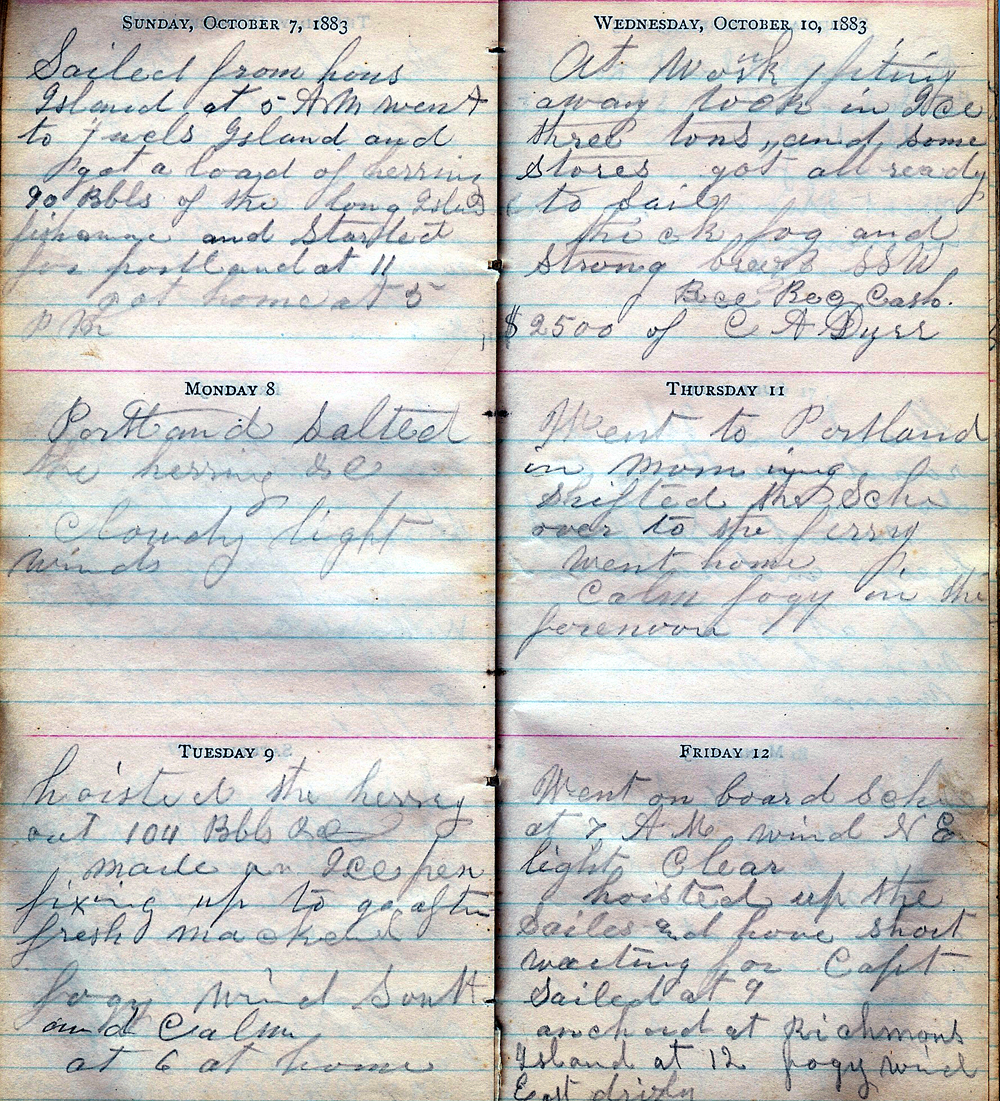 Sunday, October 7, 1883
Sailed from hous
Island at 5 AM went
to Juels Island and
got a load of herring
90 Bbls of the long Island
and Started
for portland at 11
got home at 5
P M
Monday 8
Portland Salted
the herring &c
Cloudy light
winds
Tuesday 9
hoisted the herring
out 104 Bbls &c
made an Ice pen
fixing up to go after
fresh mackerel
fogy wind South
and Calm
at 6 at home
Wednesday, October 10, 1883
At Work fiting
away took in Ice
three tons, and some
stores got all ready
to Sail
thick fog and
strong SSW
Rec Cash.
$2500 of C A Dyer
Thursday 11
Went to Portland
in morning
Shifted the Sch
over to the ferry
went home
Calm fogy in the
forenoon
Friday 12
Went on board Sch
at 7 AM wind N E
light Clear
hoisted up the
Sailes and hove Short
waiting for Capt
Sailed at 9
anchord at Richmons
Island at 12 fogy wind
East drizly